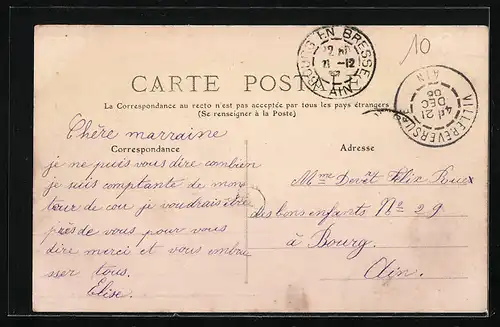 10
BOURG EN BRESSE
21-12
AIN
VILLEREVERSURE
AIN
4E 21
DEC
05
CARTE POSTALE
La Correspondance au recto n'est pas acceptée par tous les pays étrangers
(Se renseigner à la Poste)
Correspondance
Adresse
Chère marraine
je ne puis vous dire combien
je suis comptante de mon
tour de cou je voudrais être
près de vous pour vous
dire merci et vous embra
sser tous.
Elise.
Mme Félix
des bons enfants No 29
à Bourg
Ain.